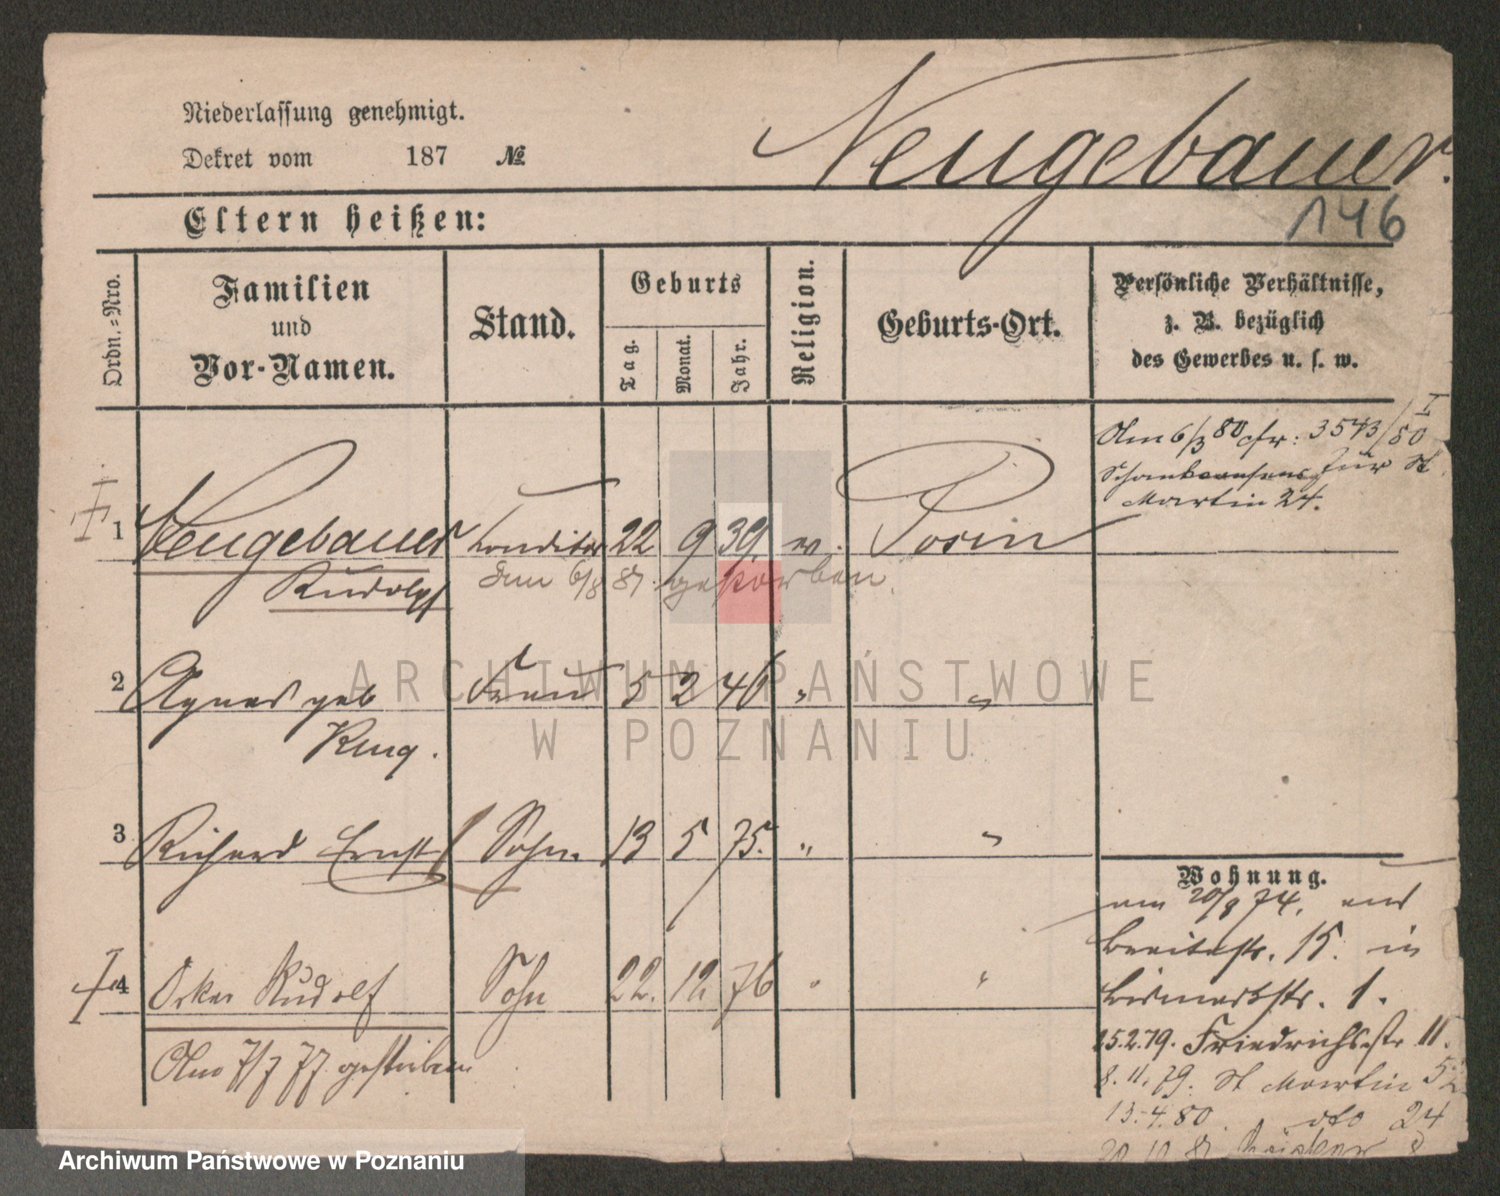 Niederlassung genehmigt.
Dekret vom 187 №
Neugebauer.
146
Eltern heißen:
Ordn.-Nro.
Familien
und
Vor-Namen.
Stand.
Geburts
Tag.
Monat.
Jahr.
Religion.
Geburts-Ort.
Persönliche Verhältnisse,
z. B. bezüglich
des Gewerbes u. s. w.
Am 6/3 80 cfr: 3543/80 I
für St
Martin 24.
1 Neugebauer Conditor 22 9 39. ev. Posen
Rudolph
6/8 81 gestorben.
2 Agnes geb Frau 5 2 46 " "
Krug.
3 Richard Ernst Sohn 13 5 75. " "
4 Oskar Rudolf Sohn 22. 12. 76 " "
Am 7/7 77. gestorben
Wohnung.
am 20/8 74. aus
Breitestr. 15. in
Bismarkstr. 1.
15.2.79. Friedrichsstr 11.
8.11.79. St Martin
13.4.80. dto 24
ARCHIWUM PAŃSTWOWE
W POZNANIU
Archiwum Państwowe w Poznaniu